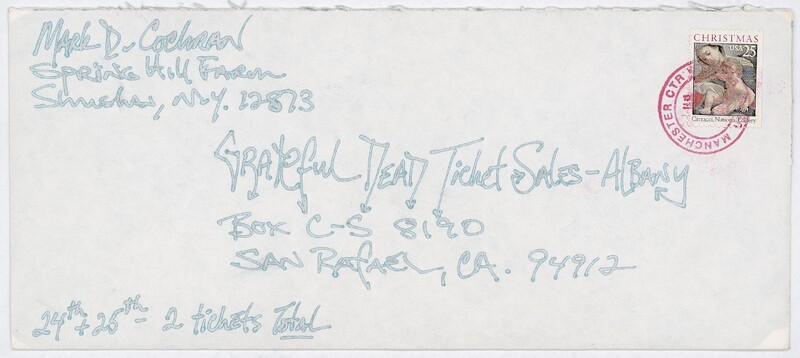 Mark D. Cochran
Spring Hill Farm
Shushan, N.Y. 12873
CHRISTMAS
USA 25
Carracci, National Gallery
MANCHESTER CTR
Grateful Dead Ticket Sales - Albany
Box C-S 8190
San Rafael, CA. 94912
24th + 25th - 2 tickets Total